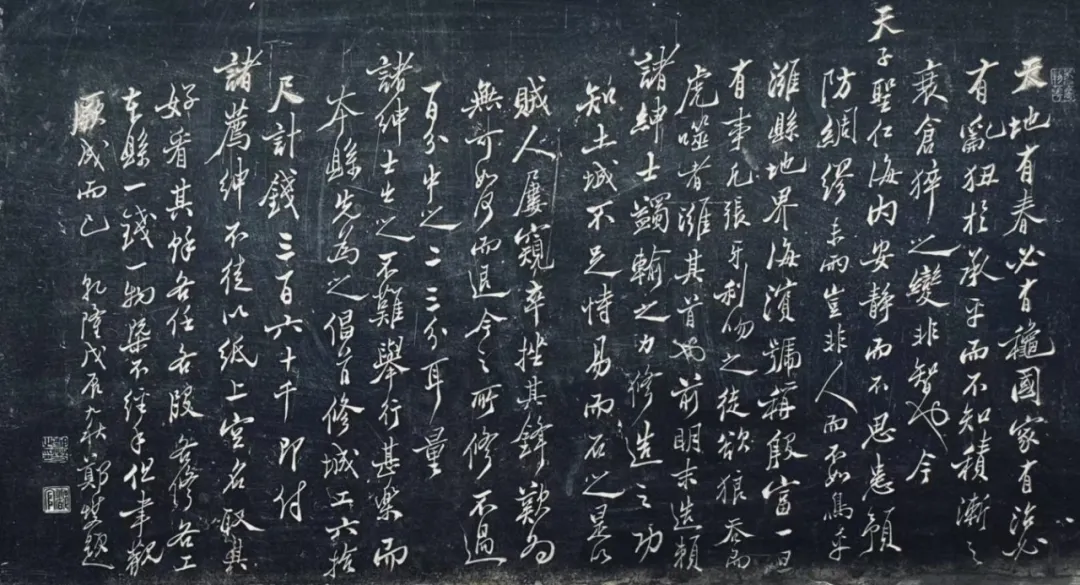 天地有春必有穐國家有治必
有亂狃於承平而不知積漸之
衰倉猝之變非智也今
天子聖仁海內安靜而不思患預
防綢繆未雨豈非人而不如鳥乎
濰縣地界海濱號稱殷富一旦
有事凡張牙利吻之徒欲狼吞而
虎噬者濰其首也前明末造賴
諸紳士蠲輸之力修造之功
知土城不足恃易而石之是以
賊人屢窺卒挫其鋒歎為
無可如何而退今之所修不過
百分中之二三分耳量
諸紳士出之不難舉行甚樂而
本縣先為之倡首修城工六拾
尺計錢三百六十千即付
諸薦紳不徒以紙上空名取其
好看其餘各任各段各修各工
本縣一錢一物槩不經手但聿觀
厥成而已 乾隆戊辰九秋鄭燮題